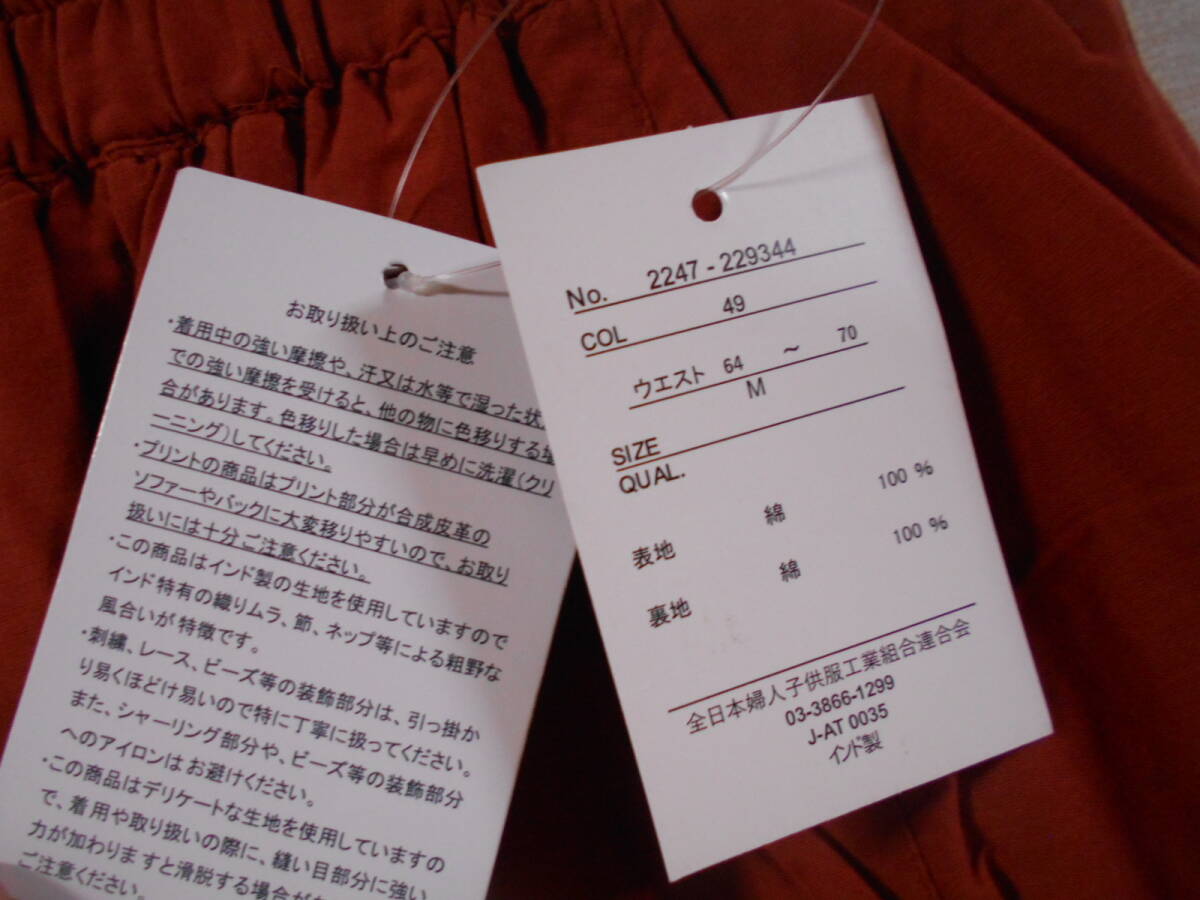 お取り扱い上のご注意
・着用中の強い摩擦や、汗又は水等で湿った状
での強い摩擦を受けると、他の物に色移りする場
合があります。色移りした場合は早めに洗濯(クリ
ーニング)してください。
・プリントの商品はプリント部分が合成皮革の
ソファーやバックに大変移りやすいので、お取り
扱いには十分ご注意ください。
・この商品はインド製の生地を使用していますので
インド特有の織りムラ、節、ネップ等による粗野な
風合いが特徴です。
・刺繍、レース、ビーズ等の装飾部分は、引っ掛か
り易くほどけ易いので特に丁寧に扱ってください。
また、シャーリング部分や、ビーズ等の装飾部分
へのアイロンはお避けください。
・この商品はデリケートな生地を使用していますの
で、着用や取り扱いの際に、縫い目部分に強い
力が加わりますと滑脱する場合が
ご注意ください。
No. 2247 - 229344
COL 49
ウエスト 64 ～ 70
M
SIZE
QUAL.
100 %
表地 綿
100 %
裏地 綿
全日本婦人子供服工業組合連合会
03-3866-1299
J-AT 0035
インド製